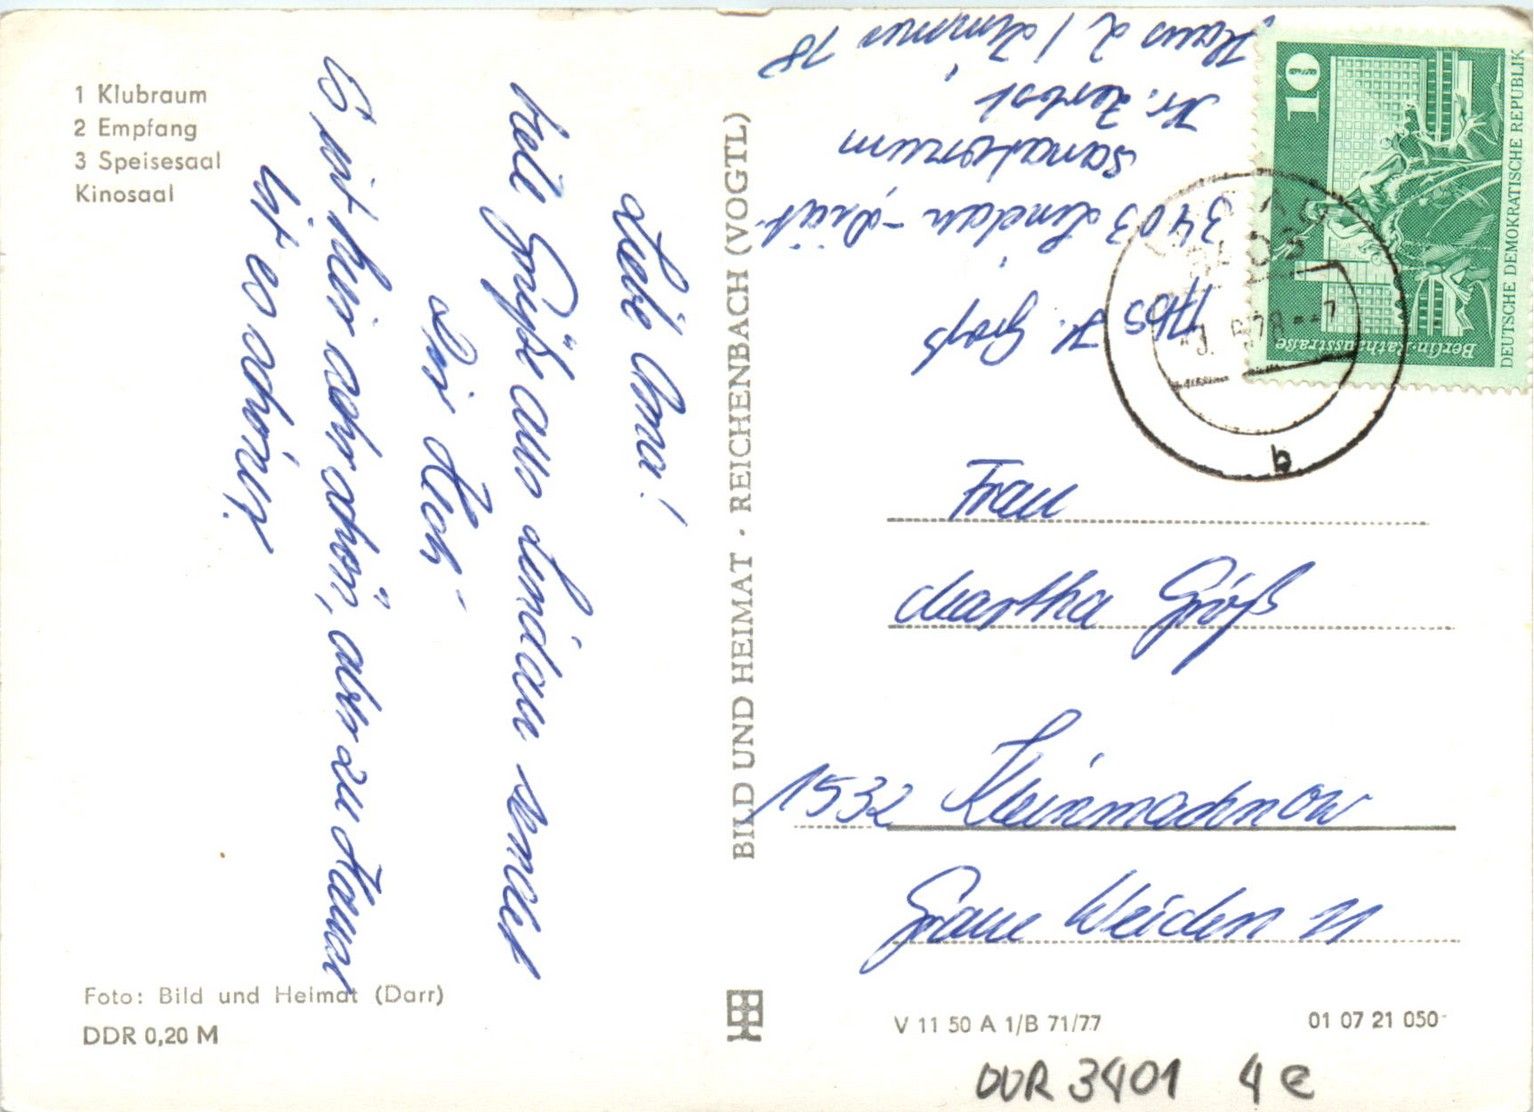 1 Klubraum
2 Empfang
3 Speisesaal
Kinosaal
Liebe Oma!
viele Grüße aus Lindau sendet
Dir
Es ist hier sehr schön, aber zu Hause
ist es schöner.
Foto: Bild und Heimat (Darr)
DDR 0,20 M
BILD UND HEIMAT · REICHENBACH (VOGTL)
Abs H. Groß
3403 Lindau
Sanatorium
Kr. Zerbst
Haus 2 / Zimmer 78
10
DEUTSCHE DEMOKRATISCHE REPUBLIK
Berlin-Rathausstraße
3403
b
Frau
Martha Groß
1532 Kleinmachnow
Graue Weiden 11
V 11 50 A 1/B 71/77
01 07 21 050
DDR 3401 4e